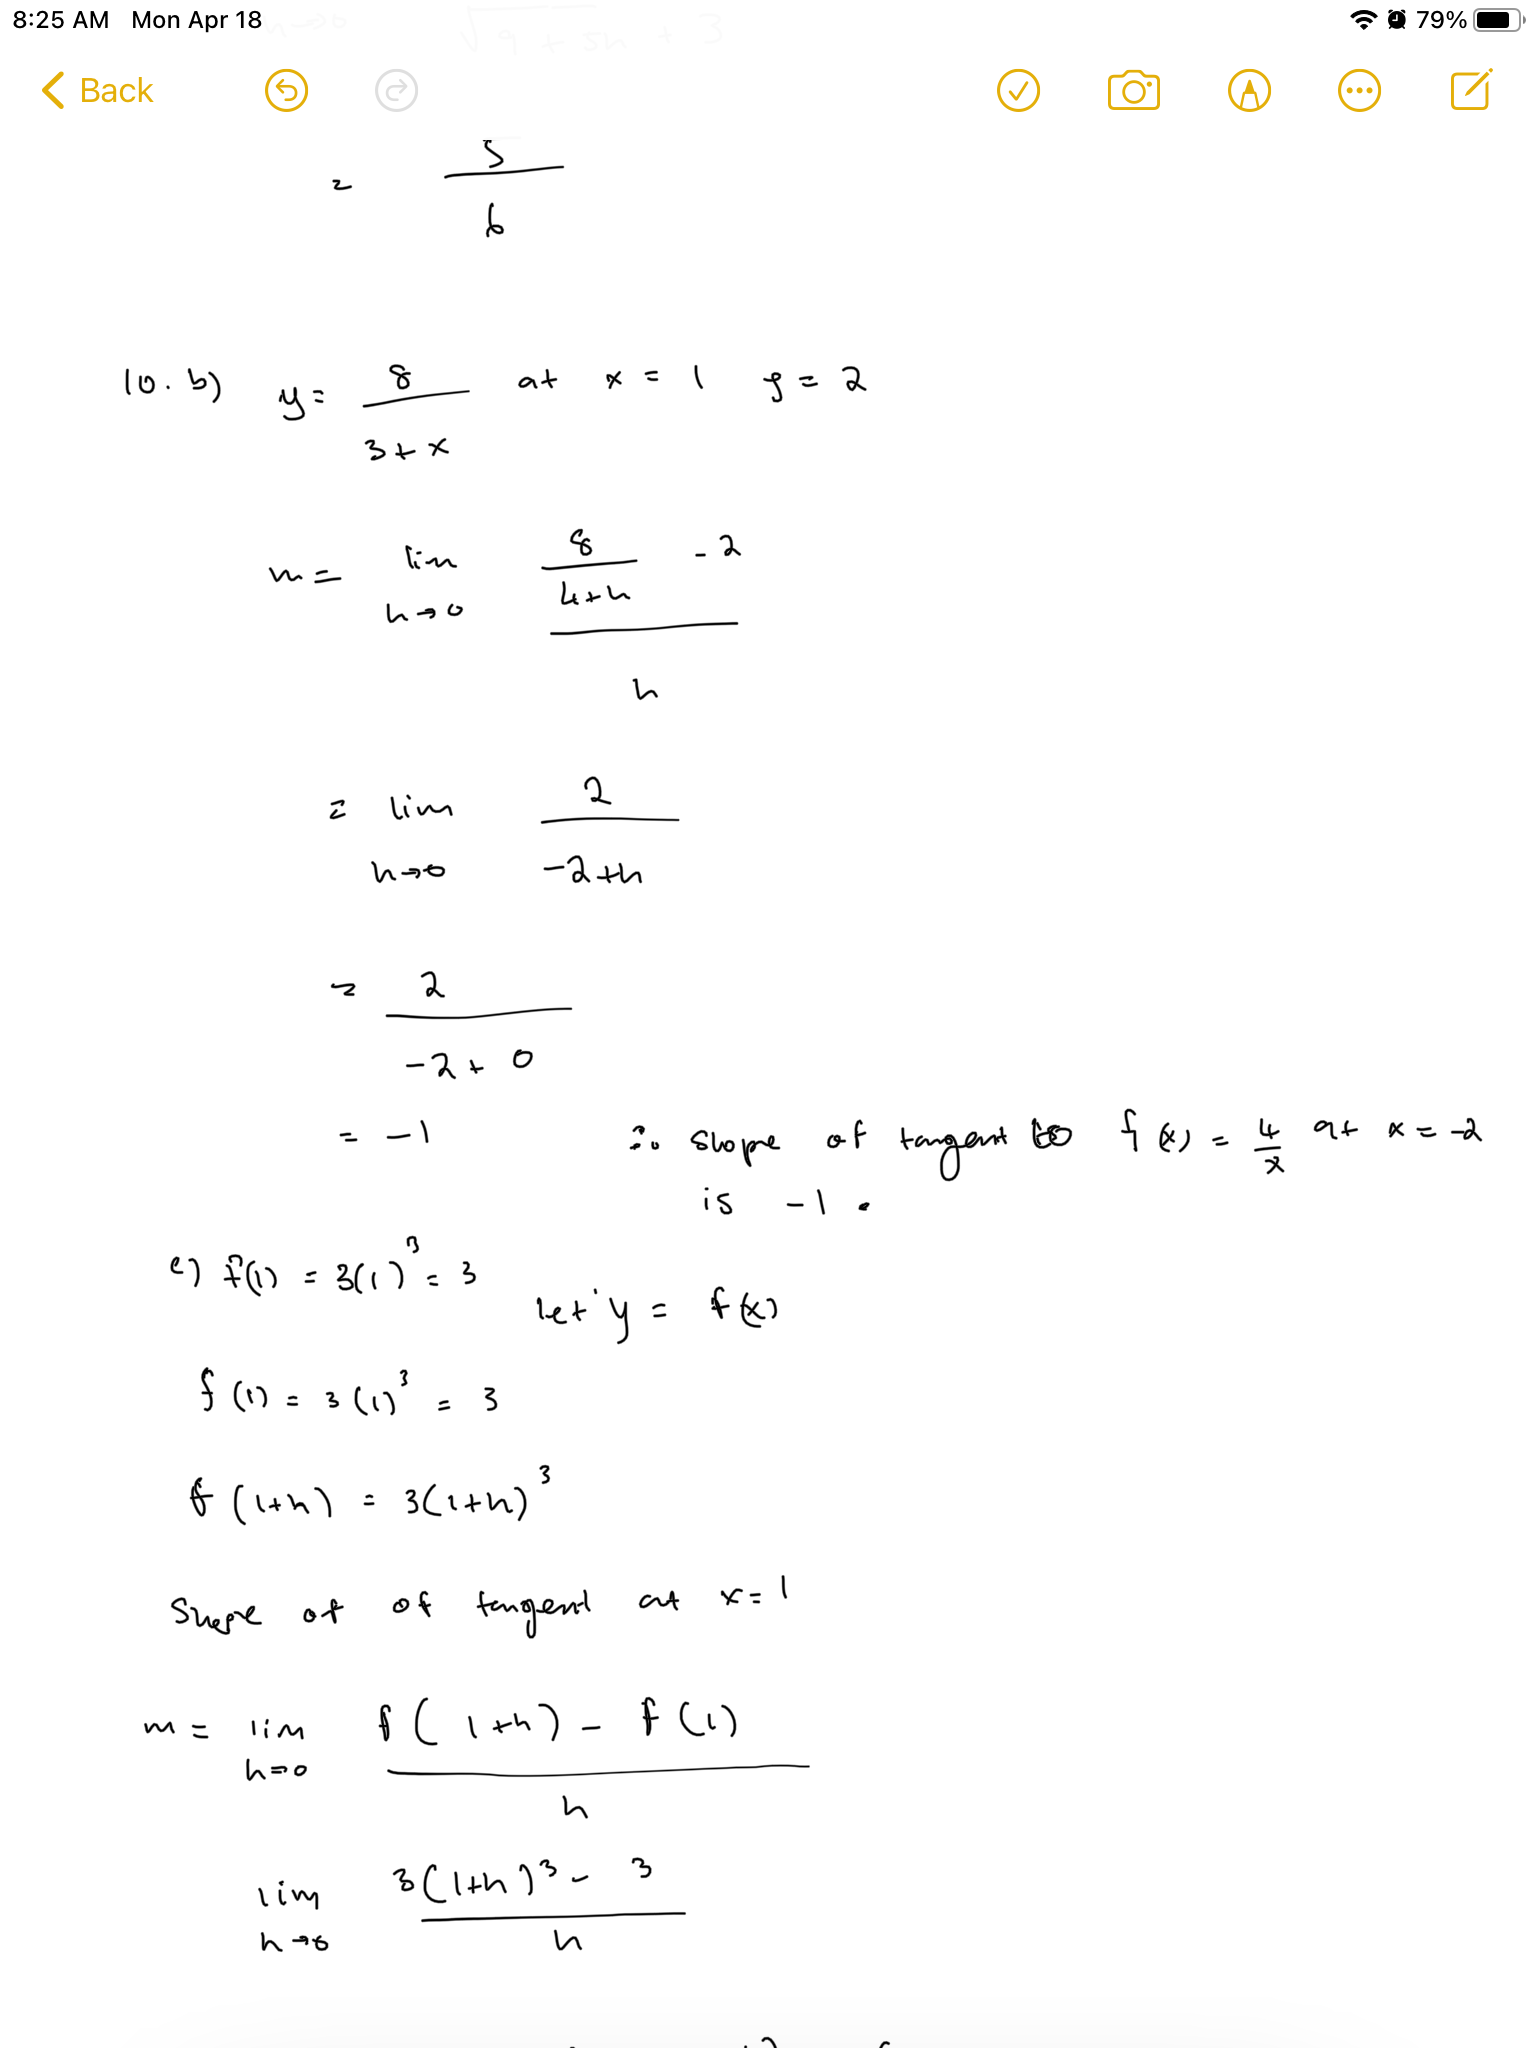 8:25 AM Mon Apr 18 79%
√9 + 5h + 3
Back
= 5/6
10. b) y = 8/(3+x) at x = 1 y = 2
m = lim h→0 (8/(4+h) - 2)/h
= lim h→0 2/(-2+h)
= 2/(-2+0)
= -1 ∴ slope of tangent to f(x) = 4/x at x = -2
is -1.
e) f(1) = 3(1)³ = 3
let y = f(x)
f(1) = 3(1)³ = 3
f(1+h) = 3(1+h)³
Slope of of tangent at x = 1
m = lim h→0 (f(1+h) - f(1))/h
lim h→0 (3(1+h)³ - 3)/h